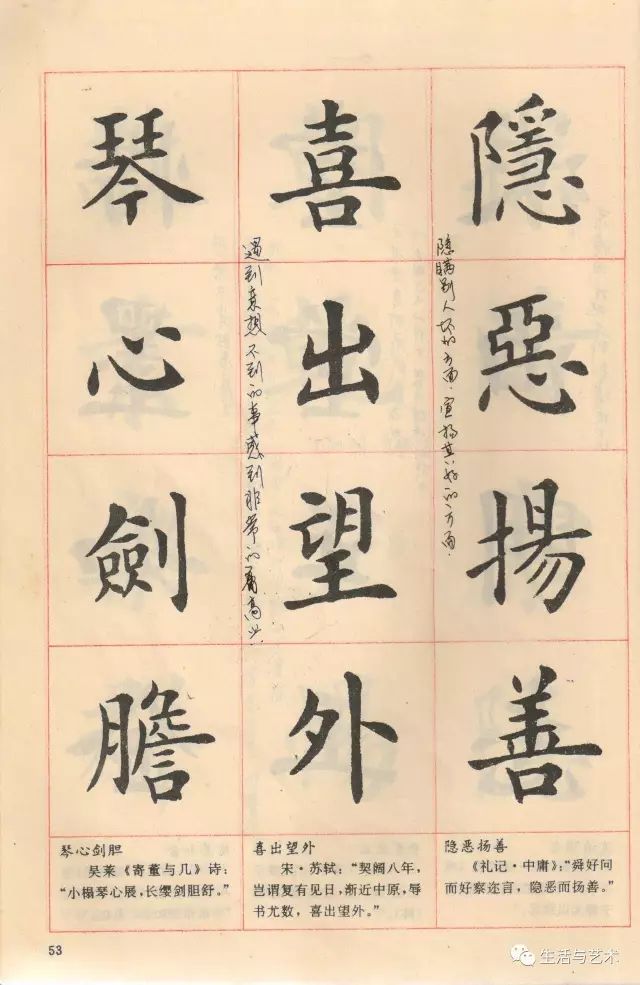 隱惡揚善
隐瞒别人坏的方面.宣扬其好的方面.
喜出望外
遇到意想不到的事感到非常的高兴
琴心劍膽
隐恶扬善
《礼记·中庸》：“舜好问
而好察迩言，隐恶而扬善。”
喜出望外
宋·苏轼：“契阔八年，
岂谓复有见日，渐近中原，辱
书尤数，喜出望外。”
琴心剑胆
吴莱《寄董与几》诗：
“小榻琴心展，长缨剑胆舒。”
53
生活与艺术